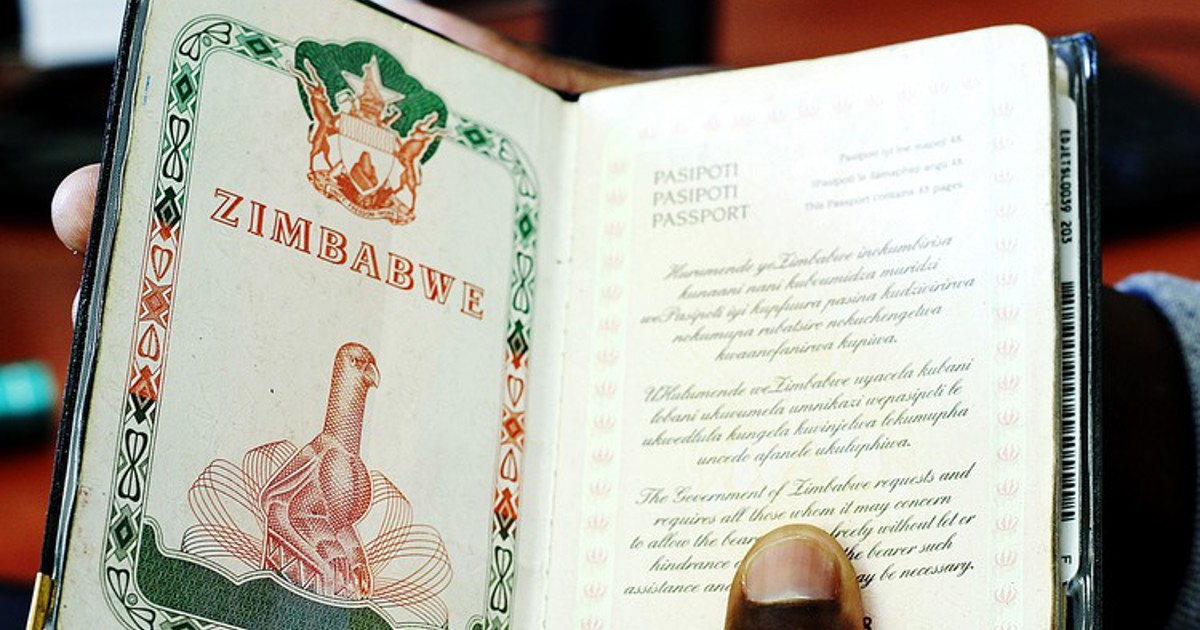 ZIMBABWE
PASIPOTI
PASIPOTI
PASSPORT
Pasipoti iyi ine mapeji 48
iPasipoti le ilamaphepi angu 48
This Passport contains 48 pages
Hurumende yeZimbabwe inokumbirisa
kunaani nani kubvumidza muridzi
wePasipoti iyi kupfuura pasina kudzivirirwa
nokumupa rubatsiro nokuchengetwa
kwaanofanirwa kupiwa.
UHulumende weZimbabwe uyacela kubani
lobani ukuvumela umnikazi wepasipoti le
ukwedlula kungela kuvinjelwa lokumupha
uncedo afanele ukuluphiwa.
The Government of Zimbabwe requests and
requires all those whom it may concern
to allow the freely without let or
hindrance the bearer such
assistance and may be necessary.